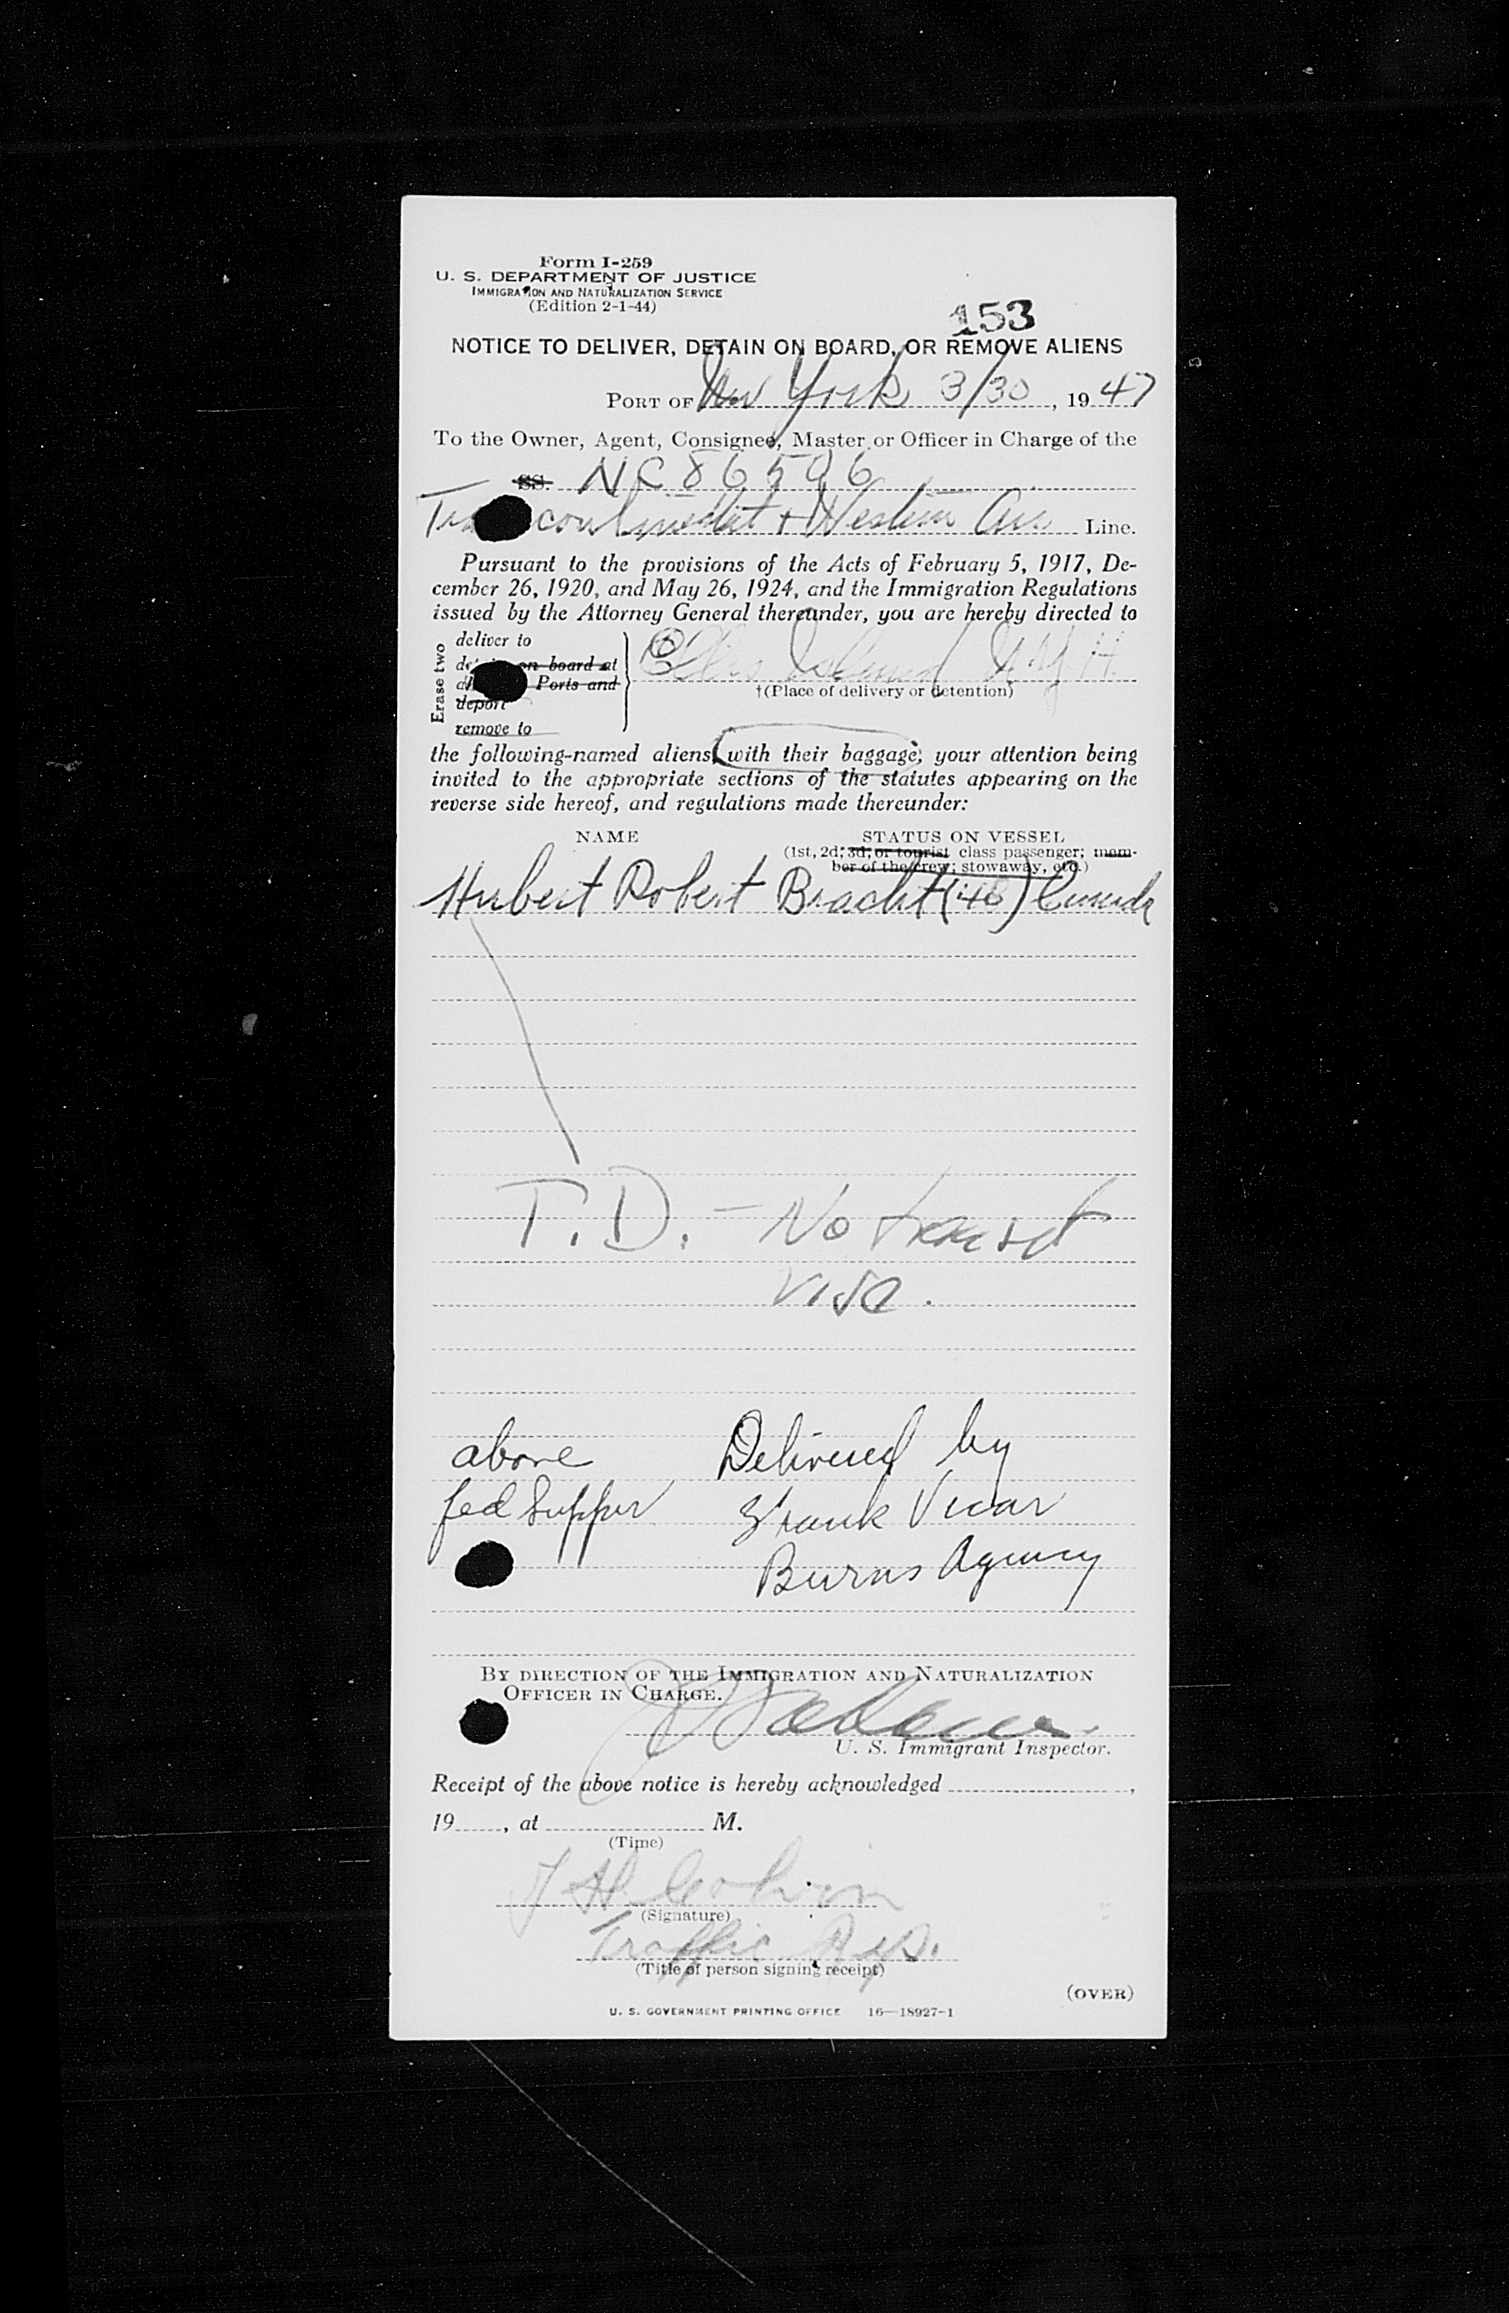 Form I-259
U. S. DEPARTMENT OF JUSTICE
IMMIGRATION AND NATURALIZATION SERVICE
(Edition 2-1-44)
153
NOTICE TO DELIVER, DETAIN ON BOARD, OR REMOVE ALIENS
PORT OF New York 3/30, 1947
To the Owner, Agent, Consignee, Master or Officer in Charge of the
SS. NC86506
Transcontinental + Western Air Line.
Pursuant to the provisions of the Acts of February 5, 1917, De-
cember 26, 1920, and May 26, 1924, and the Immigration Regulations
issued by the Attorney General thereunder, you are hereby directed to
Erase two
deliver to
on board at
Ports and
deport
remove to
Ellis Island N.Y.H.
†(Place of delivery or detention)
the following-named aliens, with their baggage; your attention being
invited to the appropriate sections of the statutes appearing on the
reverse side hereof, and regulations made thereunder:
NAME STATUS ON VESSEL
(1st, 2d, 3d, or tourist class passenger; mem-
ber of the crew; stowaway, etc.)
Hubert Robert Bracht (46) Canada
T.D. - No transit
visa.
above Delivered by
fed Supper Frank Vicar
Burns Agency
BY DIRECTION OF THE IMMIGRATION AND NATURALIZATION
OFFICER IN CHARGE.
U. S. Immigrant Inspector.
Receipt of the above notice is hereby acknowledged ,
19 , at M.
(Time)
J H Colvin
(Signature)
Traffic Rep.
(Title of person signing receipt)
(OVER)
U. S. GOVERNMENT PRINTING OFFICE 16—18927-1